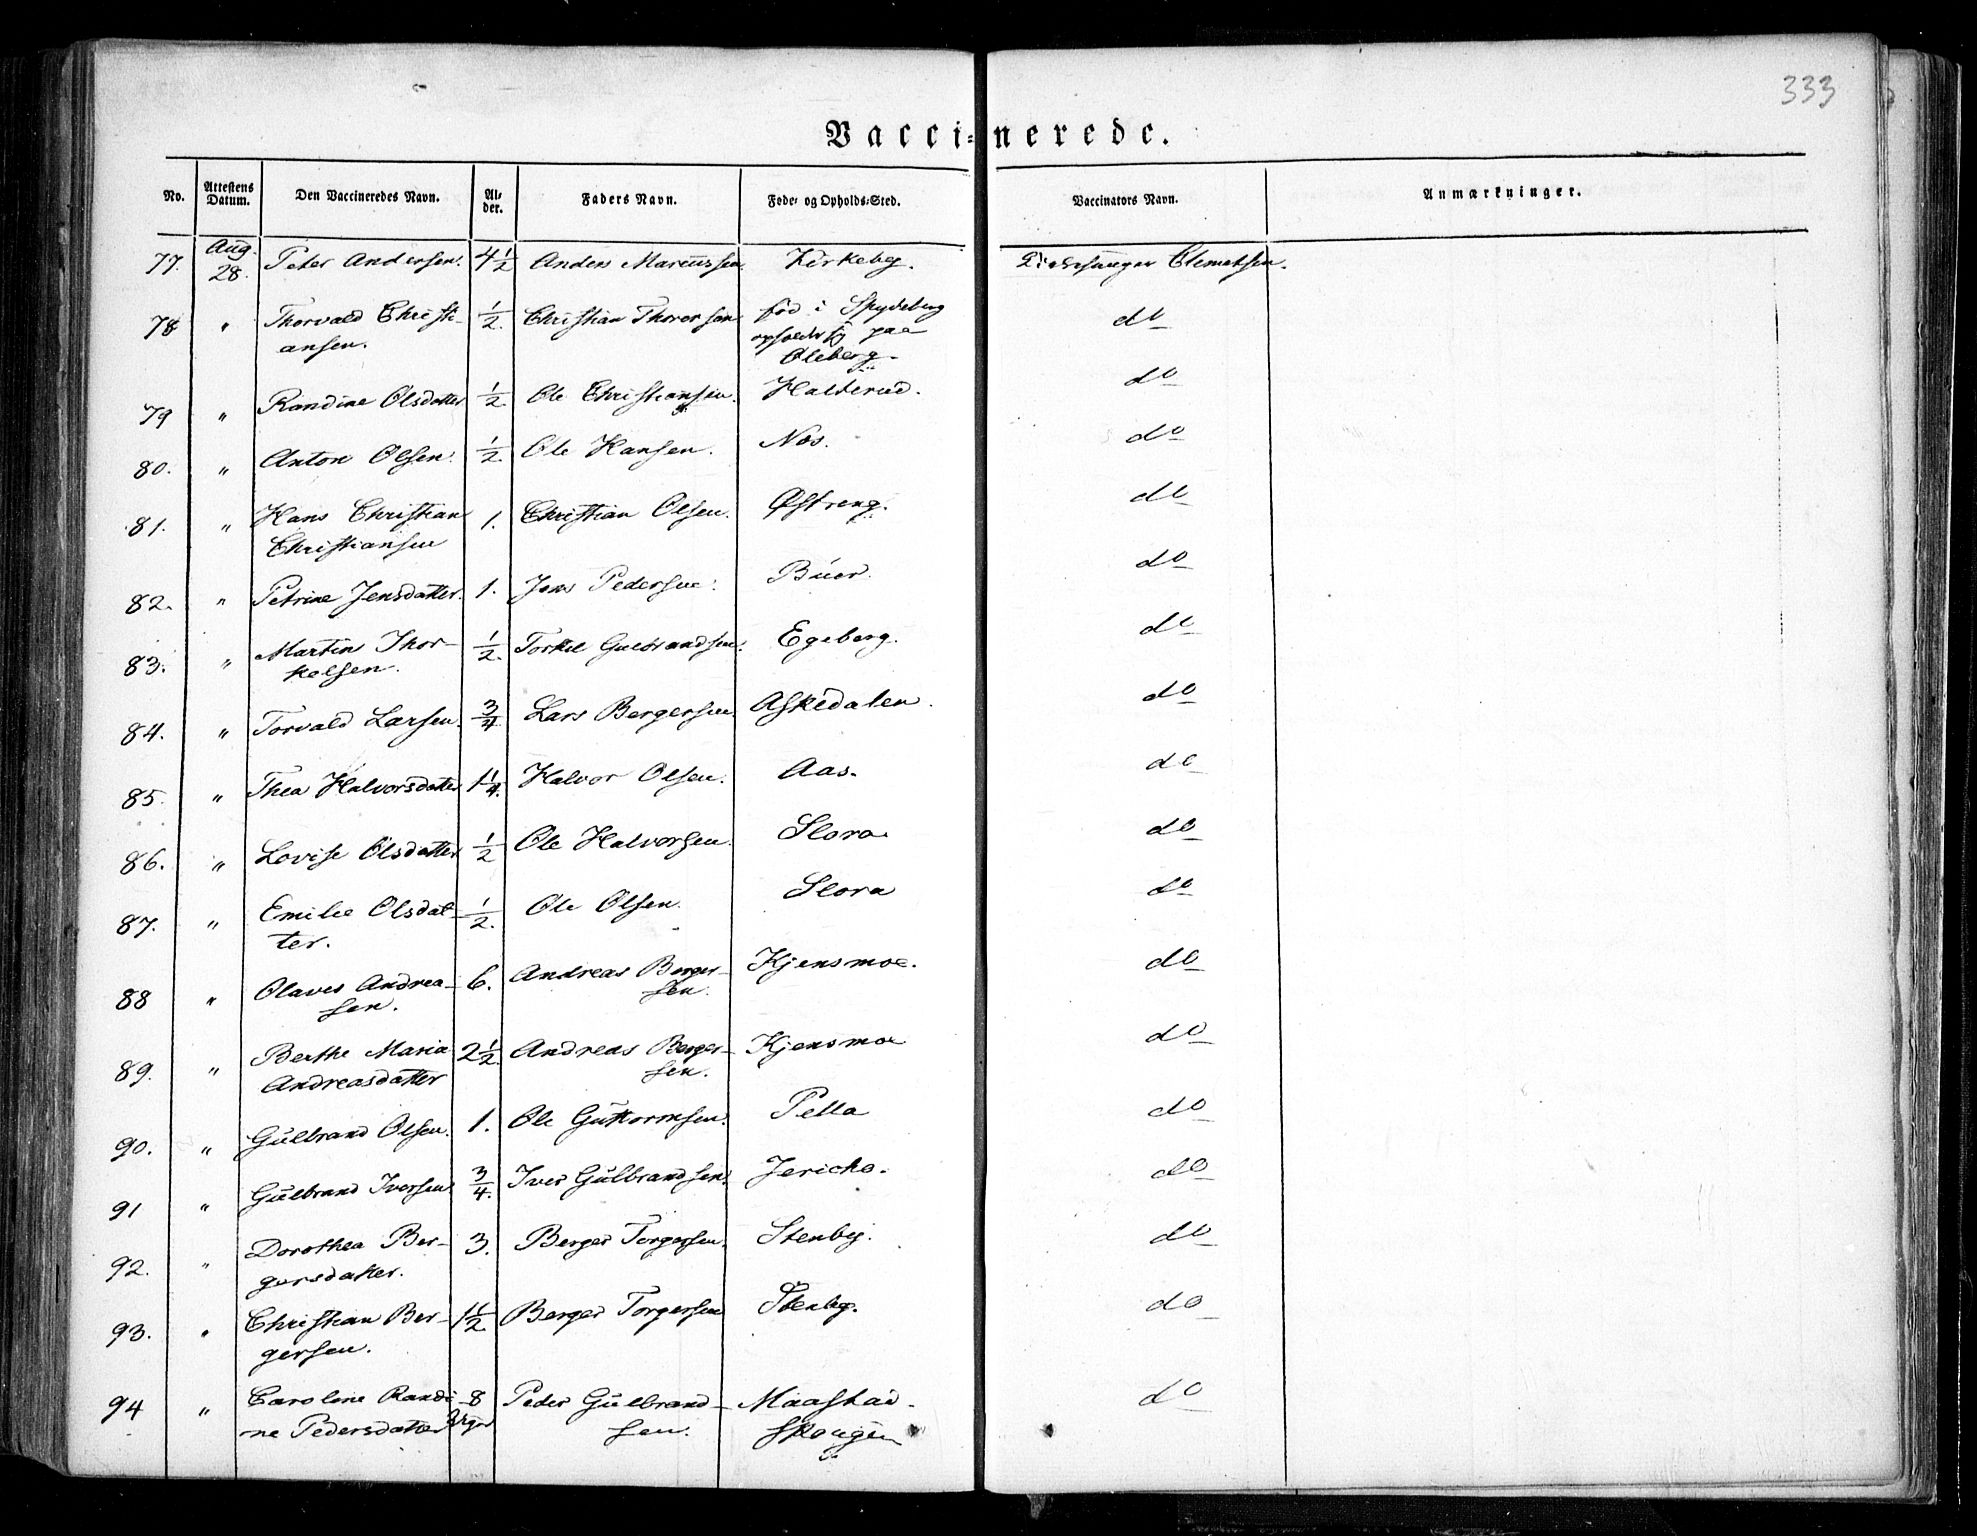 333
Vacci=nerede.
No. Attestens Datum. Den Vaccineredes Navn. Al-der. Faders Navn. Føde- og Opholds-Sted. Vaccinators Navn. Anmærkninger.
77. Aug. 28. Peter Andersen. 4 1/2 Anders Marcussen. Kirkeby. Kirkesanger Clemetsen.
78 " Thorvald Christi- 1/2. Christian Thoresen fød i Spydeberg do
ansen. opholder sig paa
Øieberg.
79 " Randine Olsdatter 1/2. Ole Christiansen. Halderud. do
80. " Anton Olsen. 1/2. Ole Hansen. Næs. do
81. " Hans Christian 1. Christian Olsen. Østreng. do
Christiansen
82. " Petrine Jensdatter. 1. Jens Pedersen. Buer. do
83. " Martin Thor- 1/2. Torkel Gulbrandsen. Egeberg. do
kelsen.
84. " Torvald Larsen. 3/4. Lars Bergersen. Askedalen. do
85. " Thea Halvorsdatter 1 1/4. Halvor Olsen. Aas. do
86. " Lovise Olsdatter 1/2 Ole Halvorsen. Slora. do
87. " Emilie Olsdat- 1/2. Ole Olsen. Slora do
ter.
88 " Olaves Andrea- 6. Andreas Berger- Kjensmoe. do
sen. sen.
89. " Berthe Maria 2 1/2. Andreas Berger- Kjensmoe do
Andreasdatter sen.
90. " Gulbrand Olsen. 1. Ole Guttormsen. Pella do
91 " Gulbrand Iversen 3/4. Iver Gulbrandsen. Jericho. do
92. " Dorothea Ber- 3. Berger Torgersen. Stenby. do
gersdatter.
93. " Christian Ber- 1 1/2 Berger Torgersen Stenby. do
gersen.
94 " Caroline Randi- 8 Peder Gulbrand- Maastad- do
ne Pedersdatter Uger sen. skougen